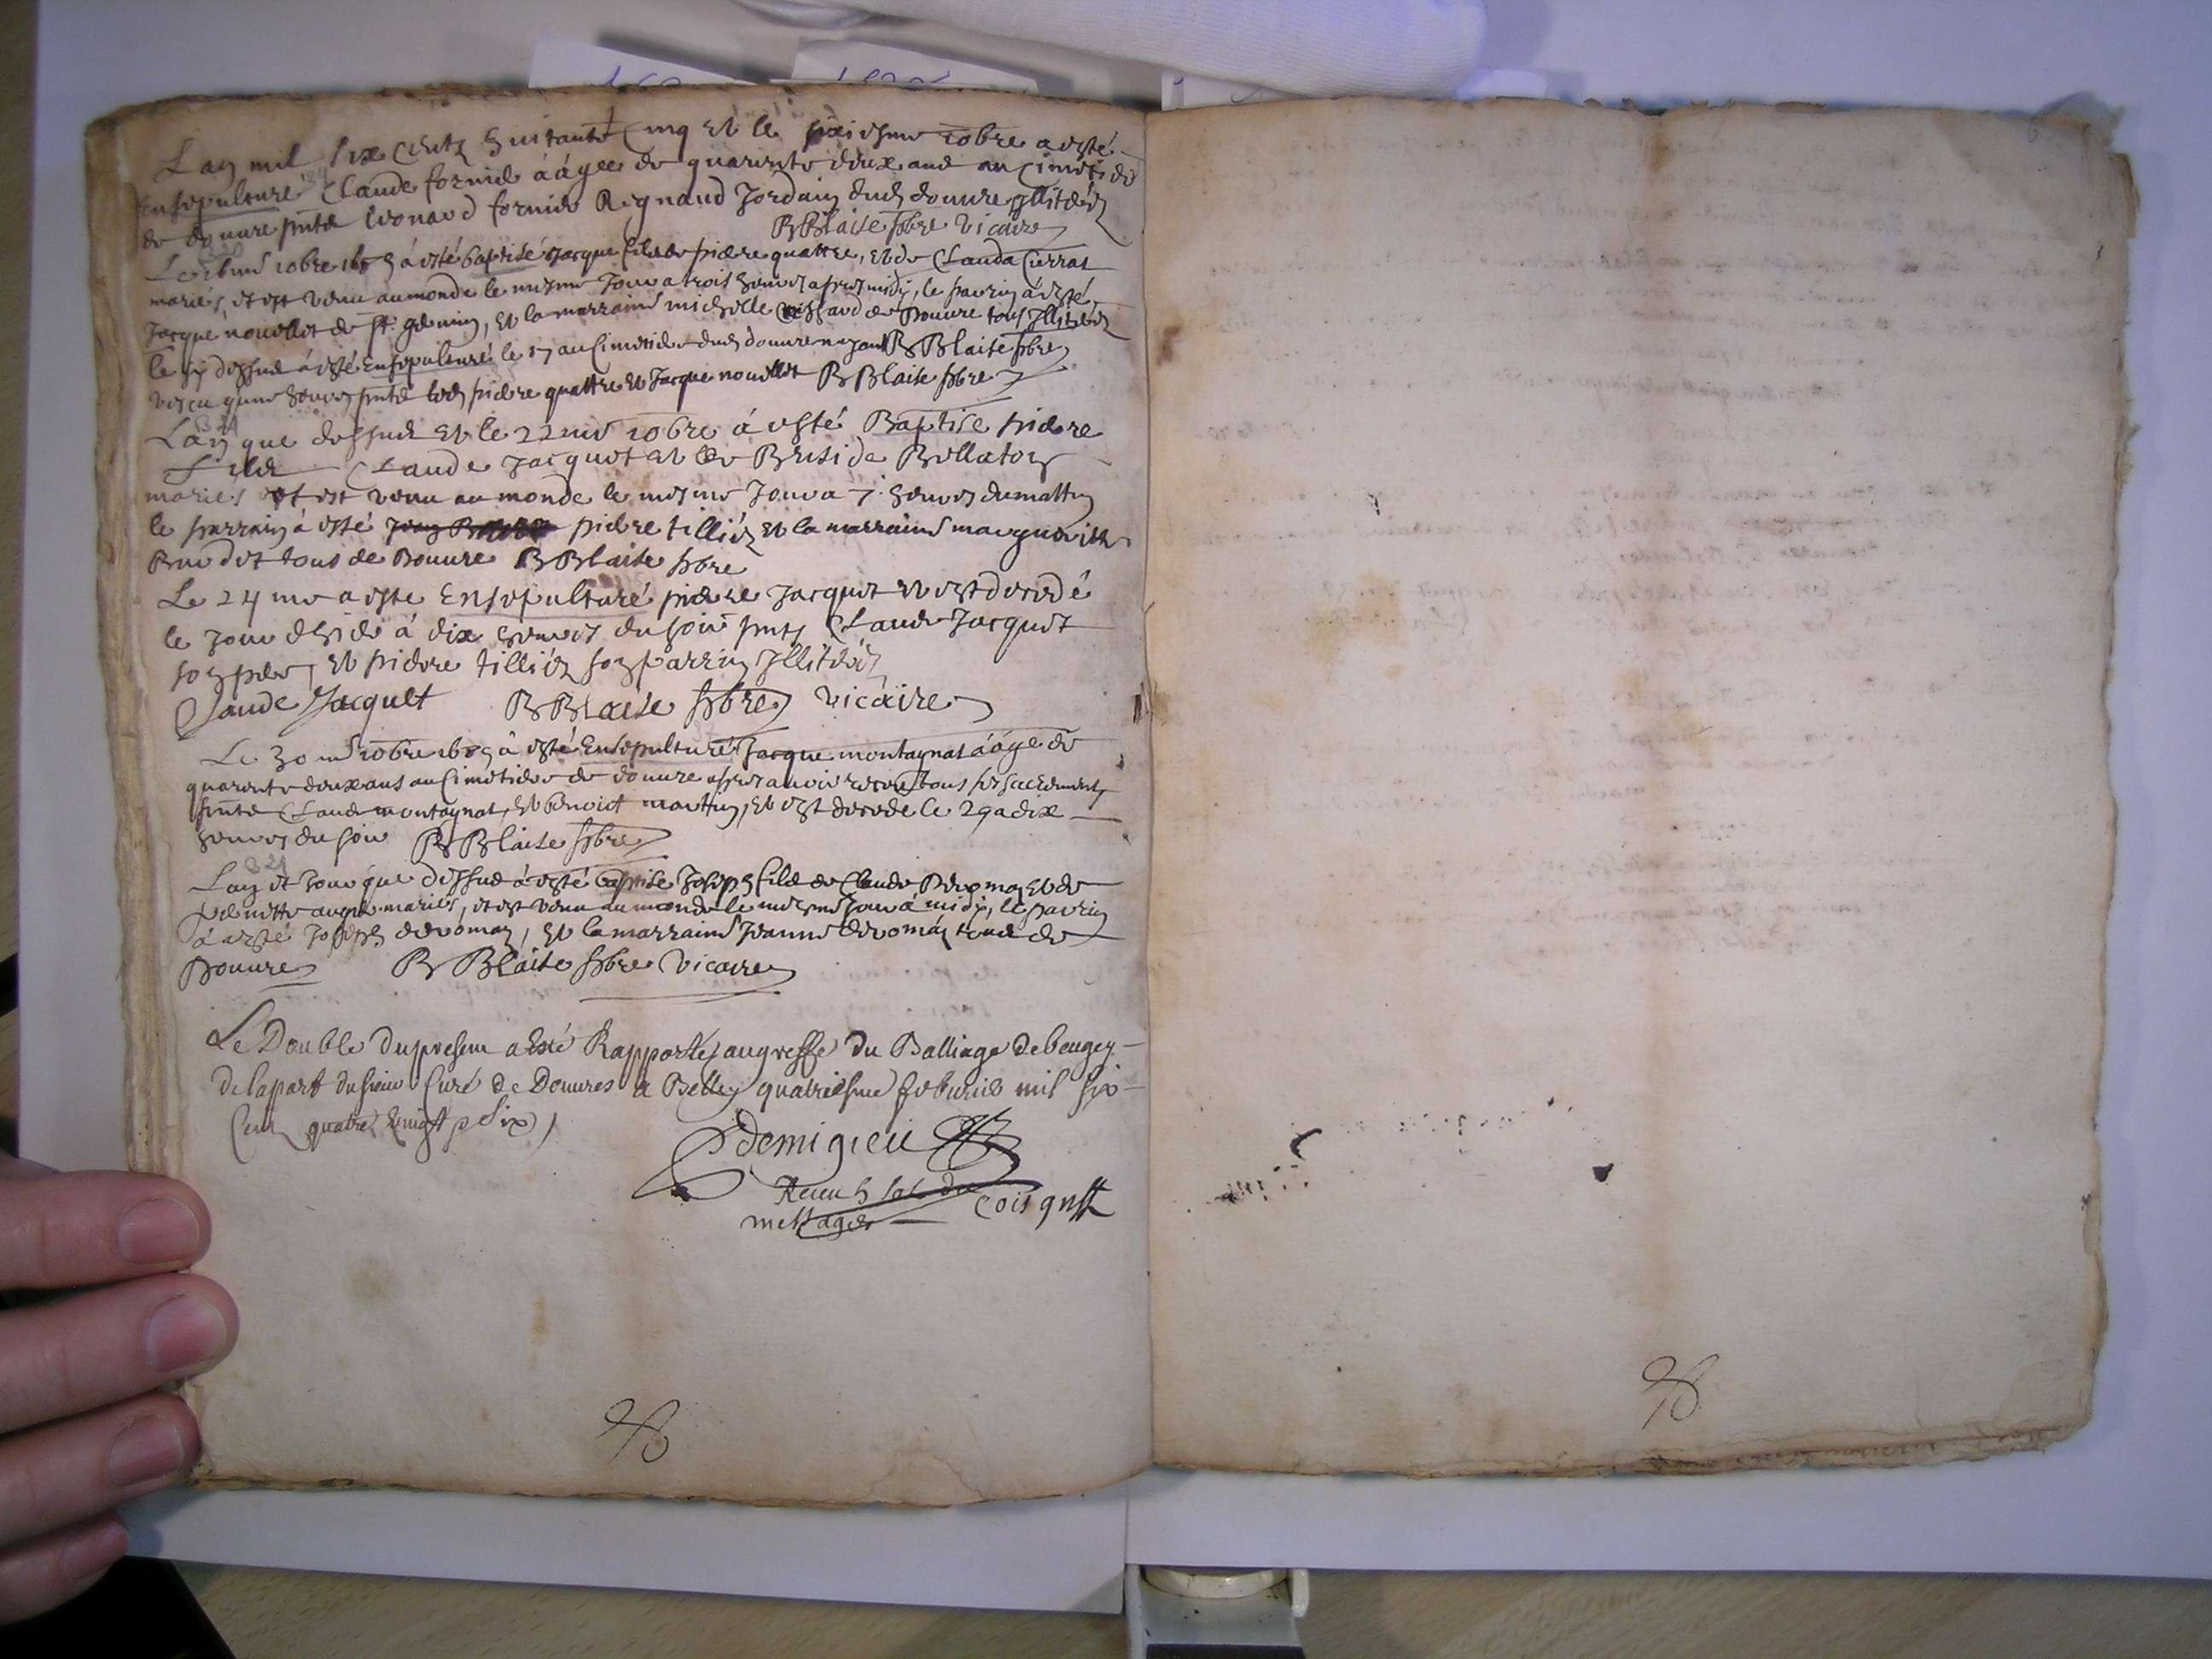 Lan mil six centz huitante cinq et le sixiesme 10bre a esté
ensepulturé Claude fornier áágee de quarente deux ans au cimetiere
de douure pntz Leonard fornier Regnaud Jordain dud douure illiterez
B Blaise pbre vicaire
Le 10bre 1685 á esté baptisé Jacque filz de pierre quattre, et de Clauda Currat
mariés, et est venu au monde le mesme Jour a trois heures apres midy, le parrin á esté
Jacque nouellet de st. germin, et la marraine michelle de Douure tous Illiterez
le sy dessus á esté Ensepulturé le 17 au Cimetiere dud douure nayant B Blaise pbre
vescu q'une heures pntz led pierre quattre et Jacque nouellet B Blaise pbre
Lan que dessus et le 22me 10bre á esté Baptise pierre
filz Claude Jacquet et de Bellaton
mariés et est venu au monde le mesme Jour a 7 heures du mattin
le parrain á esté pierre tillier et la marraine marguerite
tous de Douure B Blaise pbre
Le 24 me a este Ensepulturé pierre Jacquet et est decedé
le Jour á dix heures du soir pnts Claude Jacquet
son pere, et pierre tillier son parrin Illiterez
Claude Jacquet B Blaise pbre vicaire
Le 30me 10bre 1685 â esté Ensepulturé Jacque montagnat áágé de
quarente deux ans au Cimetiere de douure apres auoir receu tous ses sacrements
pntz Claude montagnat, et benoict marttin, et est decede le 29 a dix
heures du soir B Blaise pbre
Lan et Jour que dessus á esté baptise Joseph filz de Claude Deromaz et de
mariés, et est venu au monde le mesme Jour á midy, le parrin
á esté Joseph deromaz, et la marraine Jeanne deromaz tous de
Douure B Blaise pbre vicaire
Le Double du present a esté Rapporté au greffe du Balliage de beugey
de la part du sieur Curé de Douures a Belley quatriesme feburier mil six
Cent quatre vingt six
Demigieu
Receu 5 sols du
messager Coisguet